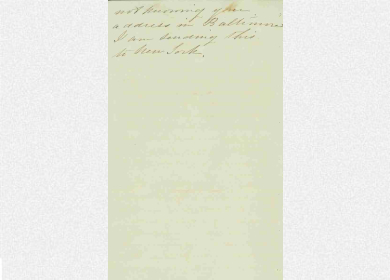 not knowing your
address in Baltimore
I am sending this
to New York.